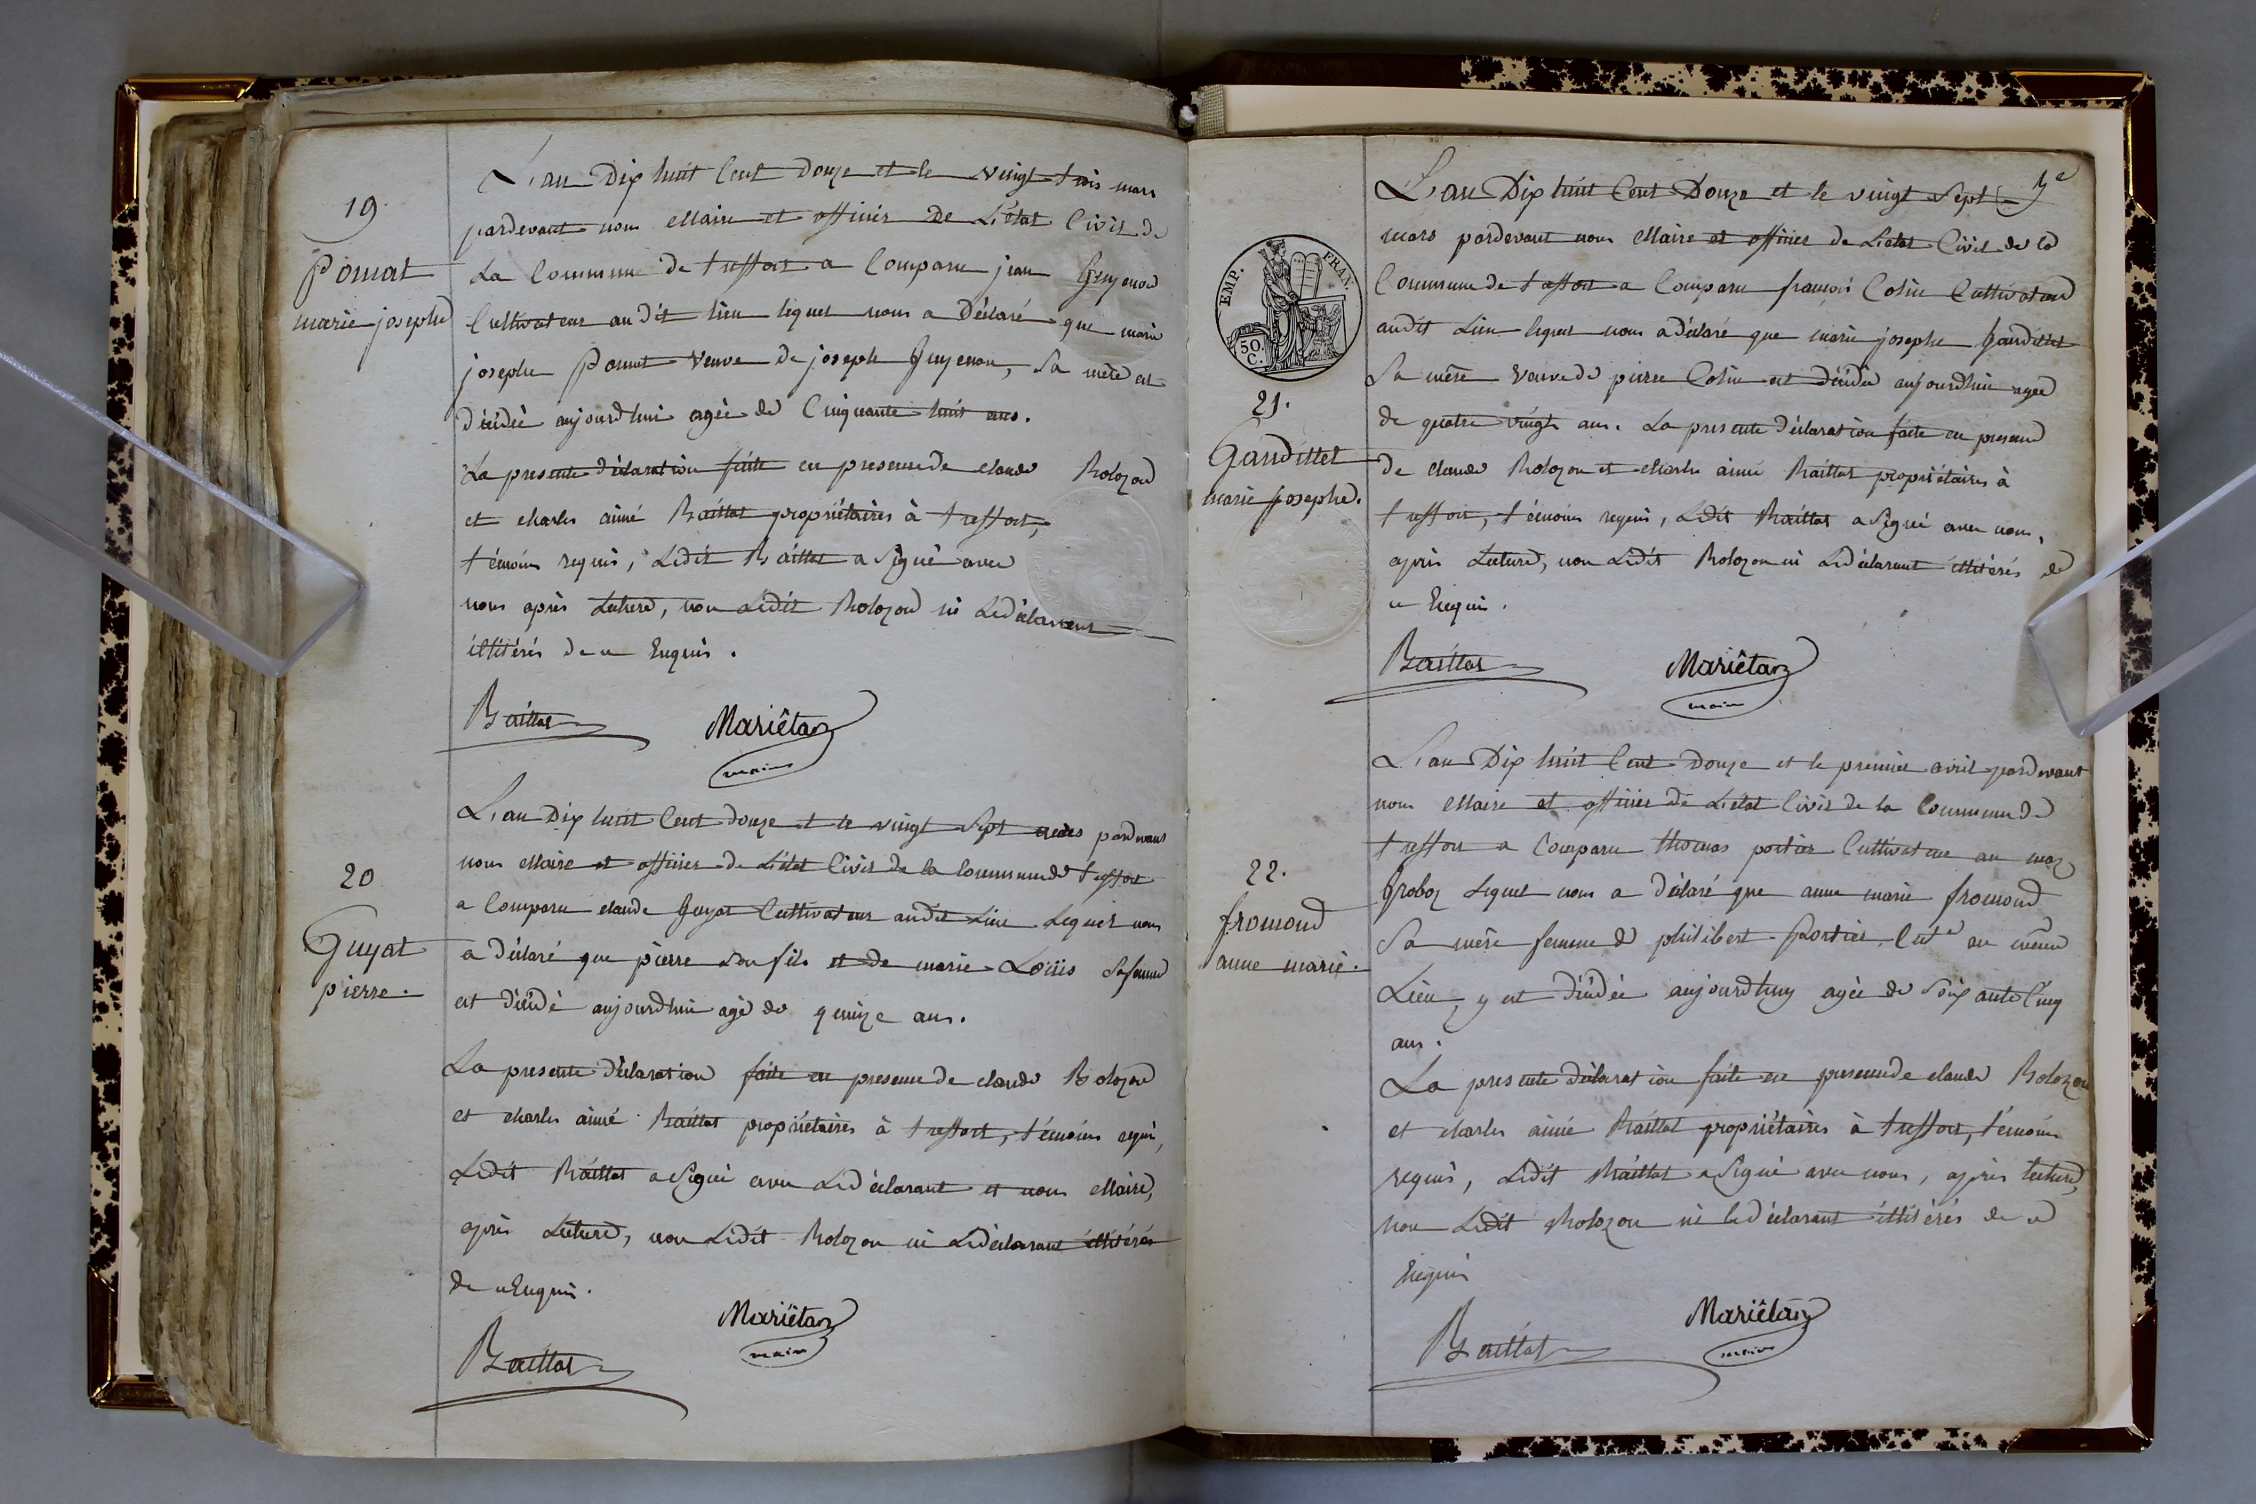 19.
Pomat
marie josephe
L'an Dix huit Cent Douze et le vingt trois mars
pardevant nous Maire et officier de L'état Civil de
La Commune de treffort a Comparu jean Guyenon
Cultivateur au dit lieu lequel nous a Déclaré que marie
josephe Pomat Veuve de joseph Guyenon, Sa mère est
décédée aujourdhui agée de Cinquante huit ans.
La presente déclaration faite en presence de claude Bolozon
et charles aimé Baillat propriétaires à treffort,
témoins requis, Ledit Baillat a Signé avec
nous après Lecture, non Ledit Bolozon ni Ledéclarant
illitérés de ce Enquis.
Baillat
Mariétan
maire
20
Guyat
pierre.
L'an Dix huit Cent douze et le vingt Sept mars pardevant
nous Maire et officier de L'état Civil de la Commune de treffort
a Comparu claude Guyat Cultivateur audit Lieu Lequel nous
a déclaré que pierre Son fils et de marie Loüis Safemme
est décédé aujourdhui agé de quinze ans.
La presente déclaration faite en presence de claude Bolozon
et charles aimé Baillat propriétaires à treffort, témoins requis,
Ledit Baillat a Signé avec Ledéclarant et nous Maire,
après Lecture, non Ledit Bolozon ni Ledéclarant illitérés
de ce Enquis.
Baillat
Mariétan
maire
EMP. FRAN.
50
C.
21.
Gandillet
marie josephe.
L'an Dix huit Cent Douze et le vingt Sept
mars pardevant nous Maire et officier de L'état Civil de la
Commune de treffort a Comparu françois Colin Cultivateur
audit Lieu lequel nous a déclaré que marie josephe Gandillet
Sa mère Veuve de pierre Colin est décédée aujourdhui agée
de quatre vingt ans. La presente déclaration faite en presence
de claude Bolozon et charles aimé Baillat propriétaires à
treffort, témoins requis, Ledit Baillat a Signé avec nous,
après Lecture, non Ledit Bolozon ni Ledéclarant illitérés de
ce Enquis.
Baillat
Mariétan
maire
22.
fromond
anne marie.
L'an Dix huit Cent Douze et le premier avril pardevant
nous Maire et officier de L'état Civil de la Commune de
treffort a Comparu thomas portier Cultivateur au maz
Groboz Lequel nous a déclaré que anne marie fromond
Sa mère femme de philibert Portier, Cult.r au même
Lieu, y est décédée aujourdhuy agée de Soix ante Cinq
ans.
La presente déclaration faite en presence de claude Bolozon
et charles aimé Baillat propriétaires à treffort, témoins
requis, Ledit Baillat a Signé avec nous, après lecture,
non Ledit Bolozon ni ledéclarant illitérés de ce
Enquis
Baillat
Mariétan
maire